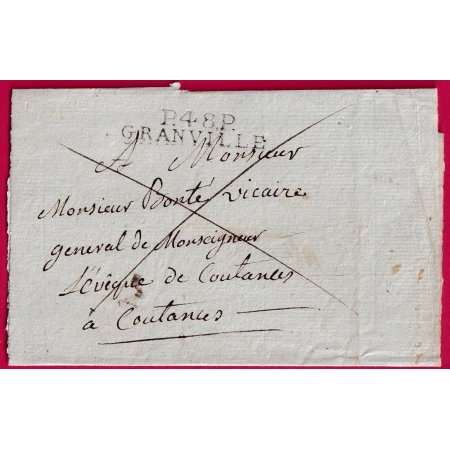 P.48.P.
GRANVILLE
A Monsieur
Monsieur Bonté vicaire
general de Monseigneur
L'évêque de Coutances
à Coutances